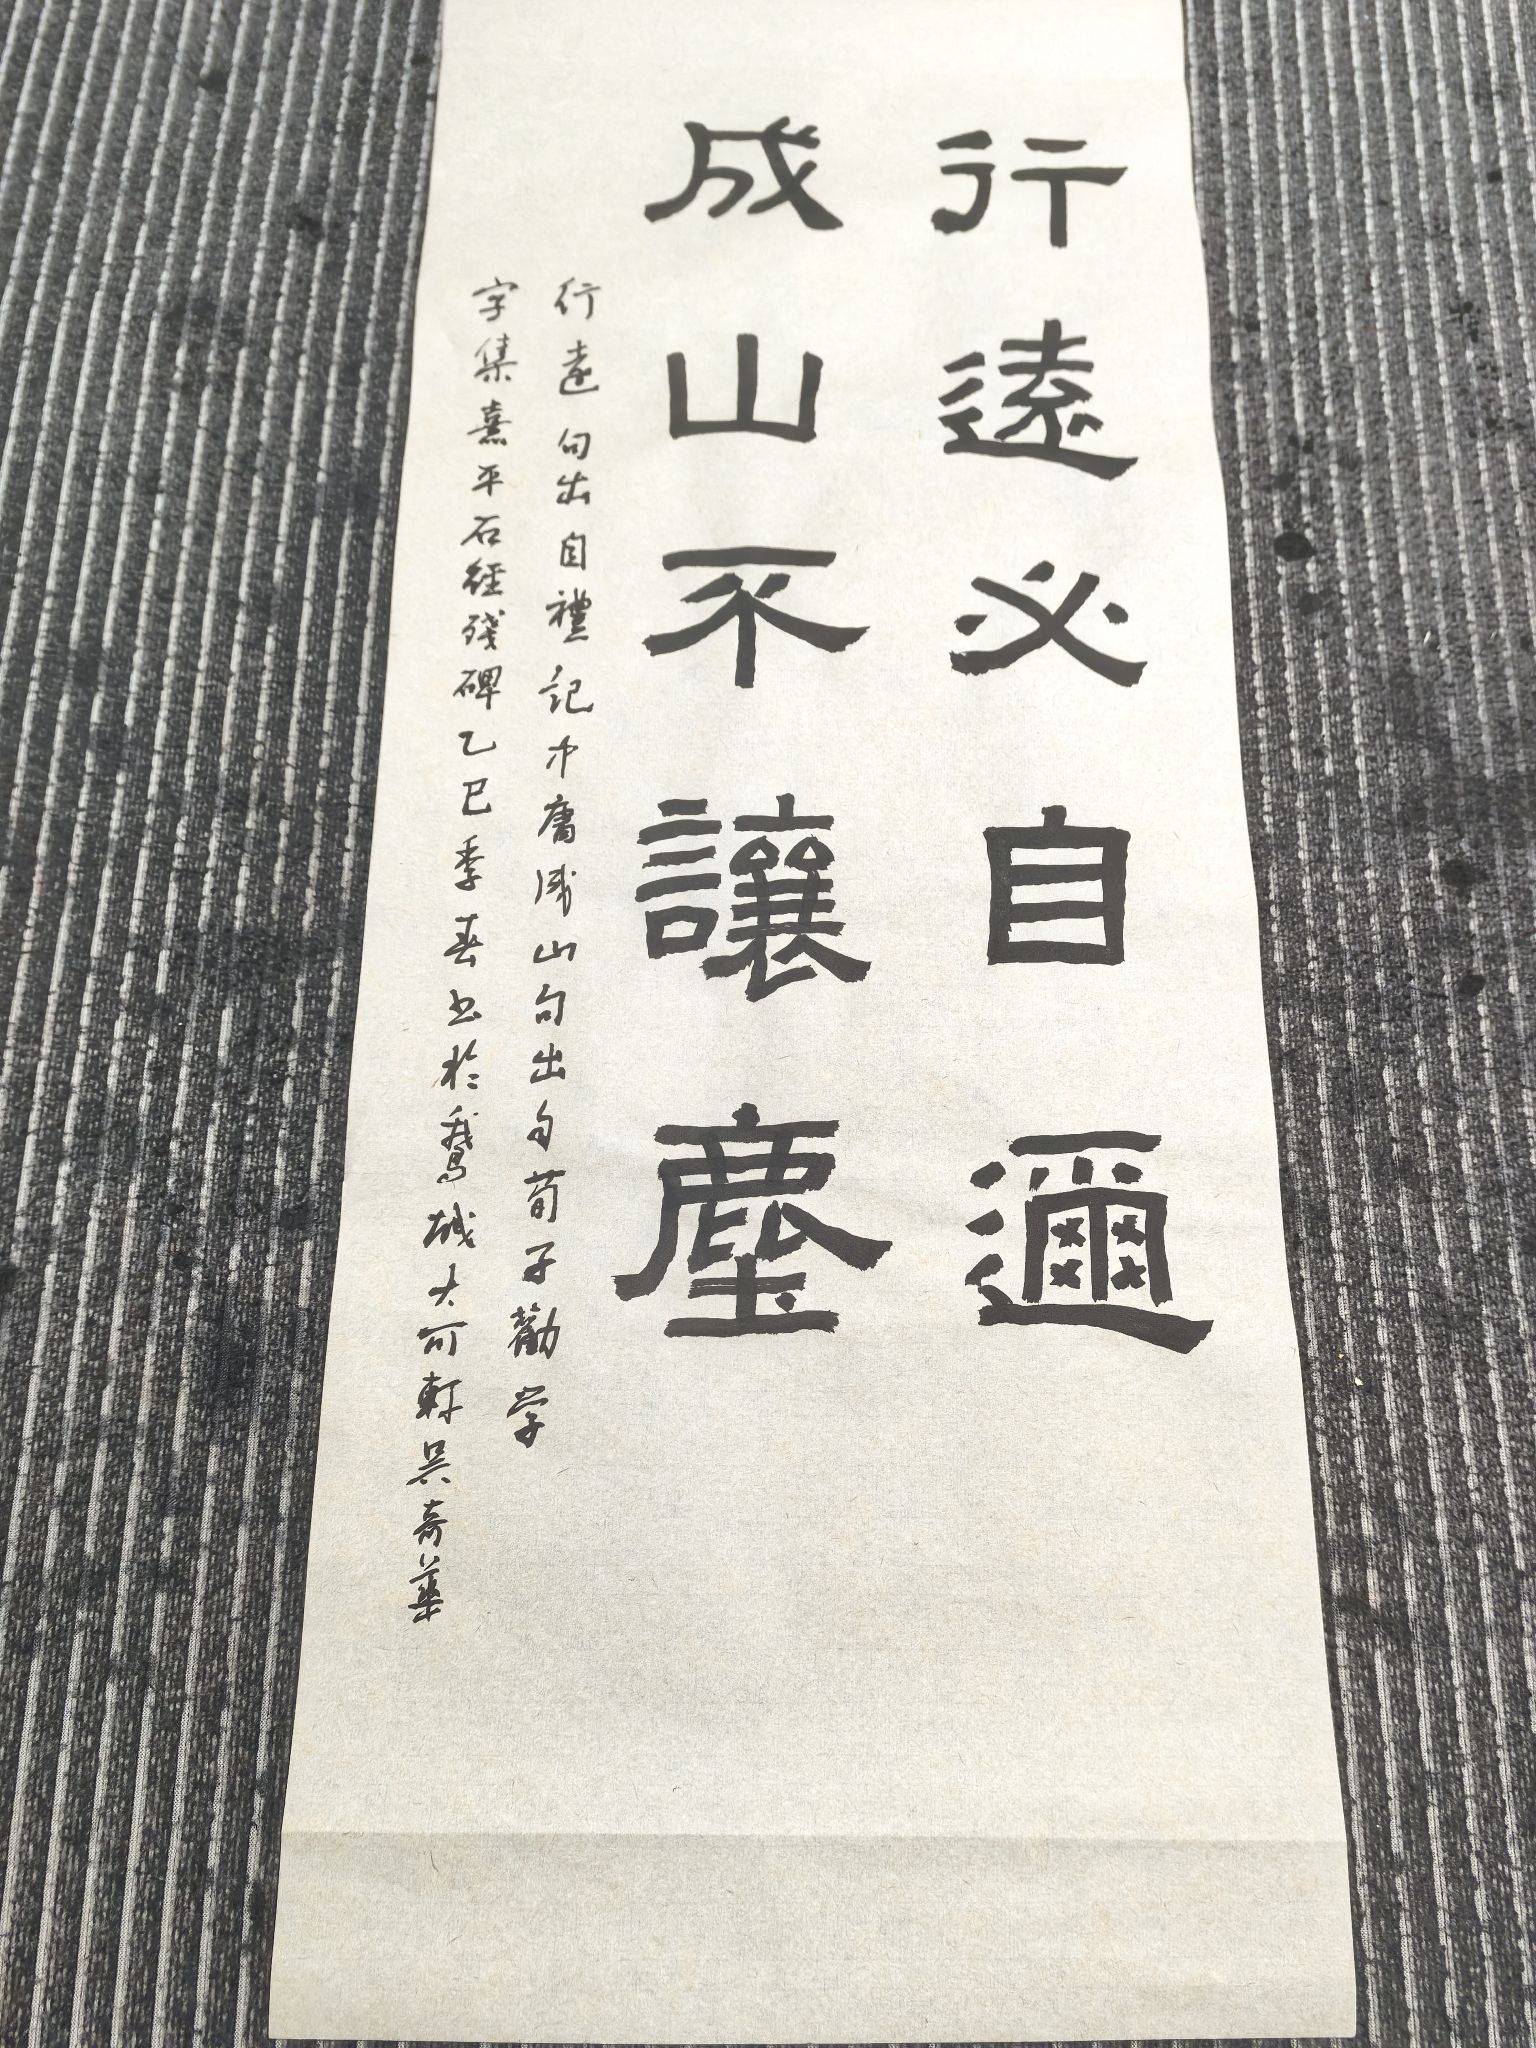 行遠必自邇
成山不讓塵
行遠句出自禮記中庸成山句出自荀子勸学
字集熹平石经残碑乙巳季春书於鵝城大可軒吴奇華